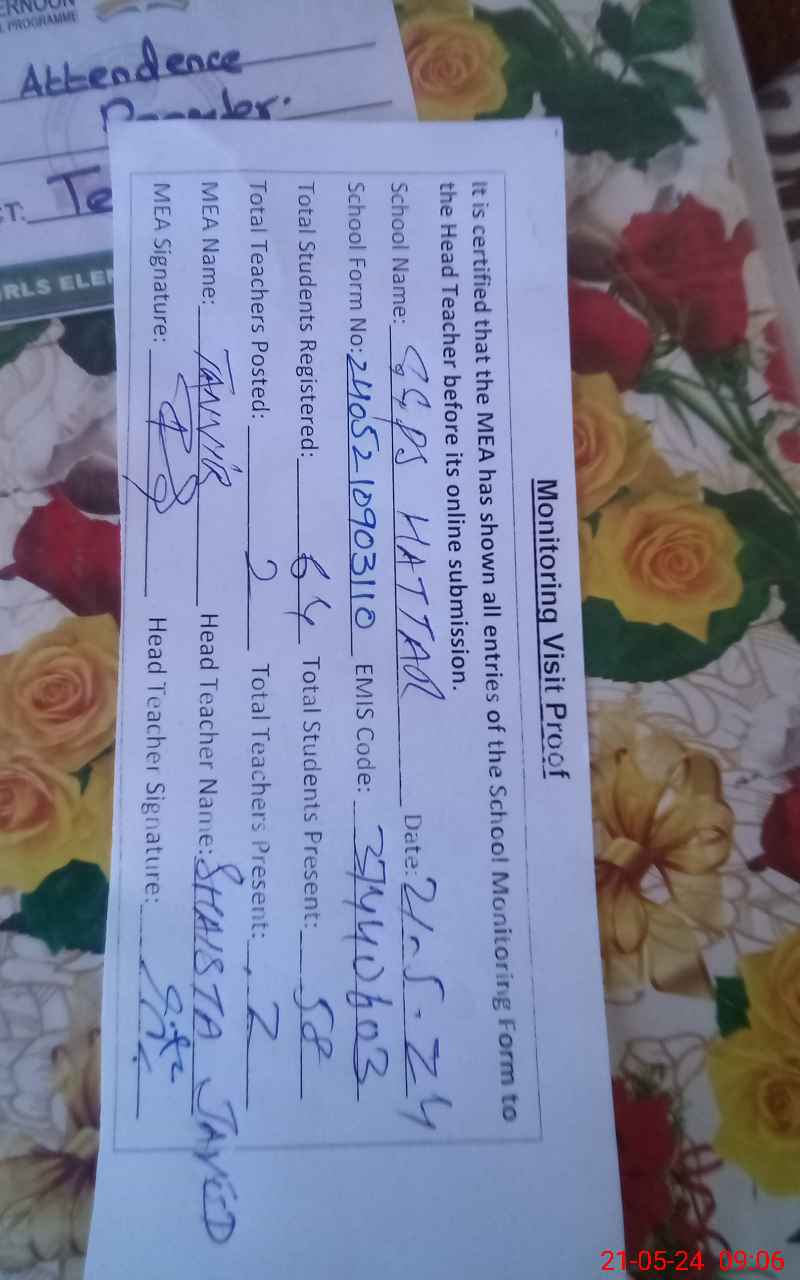 ERNOON
L PROGRAMME
Attendence
T:
RLS ELEM
Monitoring Visit Proof
It is certified that the MEA has shown all entries of the School Monitoring Form to
the Head Teacher before its online submission.
School Name: GGPS HATTAR Date: 21-5-24
School Form No: 2405210903110 EMIS Code: 37440603
Total Students Registered: 64 Total Students Present: 58
Total Teachers Posted: 2 Total Teachers Present: 2
MEA Name: TANVIR Head Teacher Name: SHAISTA JAVED
MEA Signature: Head Teacher Signature:
21-05-24 09:06